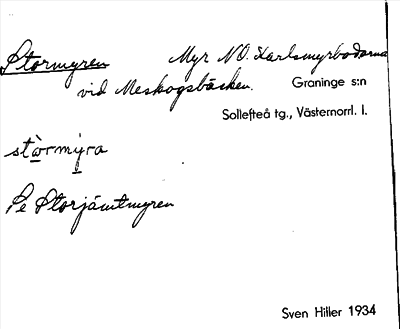 Stormyren Myr NO. Karlsmyrbodarna
vid Meskogsbäcken. Graninge s:n
Sollefteå tg., Västernorrl. l.
stàrmýra
Se Storjämtmyren
Sven Hiller 1934